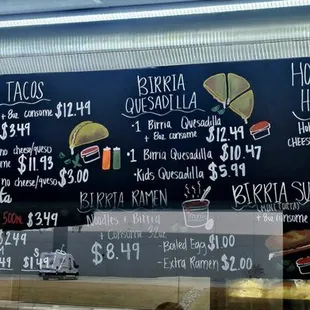 TACOS
+ 8oz consome $12.49
$3.49
no cheese/queso
$11.93
no cheese/queso $3.00
500mL $3.49
$2.49
$1.49
BIRRIA
QUESADILLA
·1 Birria Quesadilla
+ 8oz consome $12.49
·1 Birria Quesadilla $10.47
·Kids Quesadilla $5.99
BIRRIA RAMEN
Noodles + Birria
+ Consome 32oz
$8.49
-Boiled Egg $1.00
-Extra Ramen $2.00
HO
H
CHEES
BIRRIA SU
+ 8oz consome
$